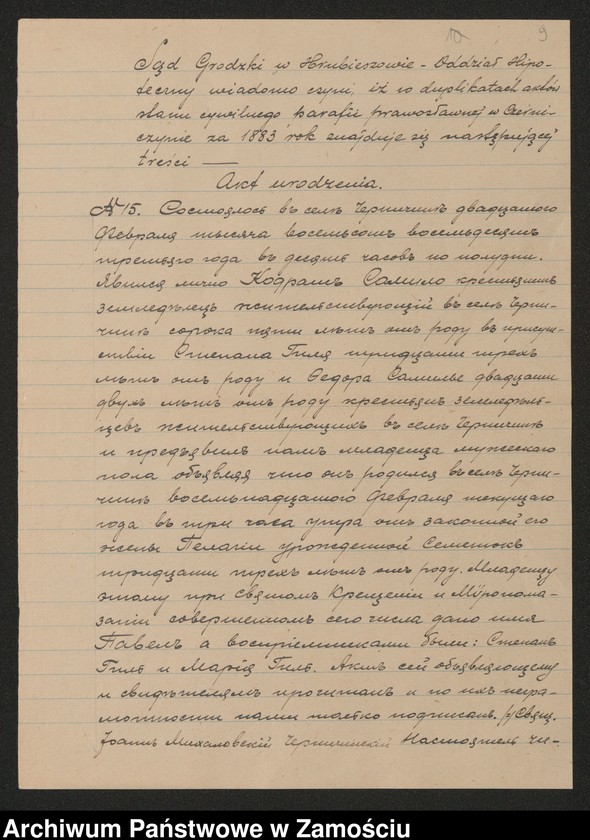 10 9
Sąd Grodzki w Hrubieszowie - Oddział Hipo-
teczny wiadomo czyni, iż w duplikatach aktów
stanu cywilnego parafii prawosławnej w Czerni-
czynie za 1883 rok znajduje się następującej
treści —
Akt urodzenia.
№ 15. Состоялось въ селѣ Черничинѣ двадцатого
Февраля тысяча восемьсотъ восемьдесятъ
третьяго года въ десять часовъ по полудни.
Явился лично Кодратъ Самило крестьянинъ
земледѣлецъ жительствующій въ селѣ Черни-
чинѣ сорока пяти лѣтъ отъ роду въ присут-
ствіи Степана Гиля тридцати трехъ
лѣтъ отъ роду и Ѳедора Самилы двадцати
двухъ лѣтъ отъ роду крестьянъ земледѣль-
цевъ жительствующихъ въ селѣ Черничинѣ
и предъявилъ намъ младенца мужескаго
пола объявляя что онъ родился въ селѣ Черни-
чинѣ восемьнадцатого Февраля текущаго
года въ три часа утра отъ законной его
жены Пелагіи урожденной Семенюкъ
тридцати трехъ лѣтъ отъ роду. Младенцу
этому при Святомъ Крещеніи и Мѵропома-
заніи совершенномъ сего числа дано имя
Павелъ а воспріемниками были: Степанъ
Гиль и Марія Гиль. Актъ сей объявляющему
и свидѣтелямъ прочитанъ и по ихъ негра-
мотности нами только подписанъ. /-/ Свящ.
Іоаннъ Михаловскій Черничинскій Настоятель чи-
Archiwum Państwowe w Zamościu